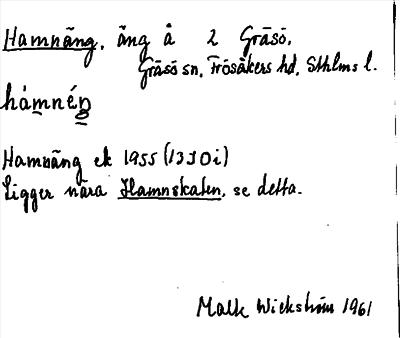 Hamnäng, äng å 2 Gräsö,
Gräsö sn, Frösåkers hd, Sthlms l.
hámnéŋ
Hamnäng ek 1955 (13I0i)
Ligger nära Hamnskaten, se detta.
Wickström 1961